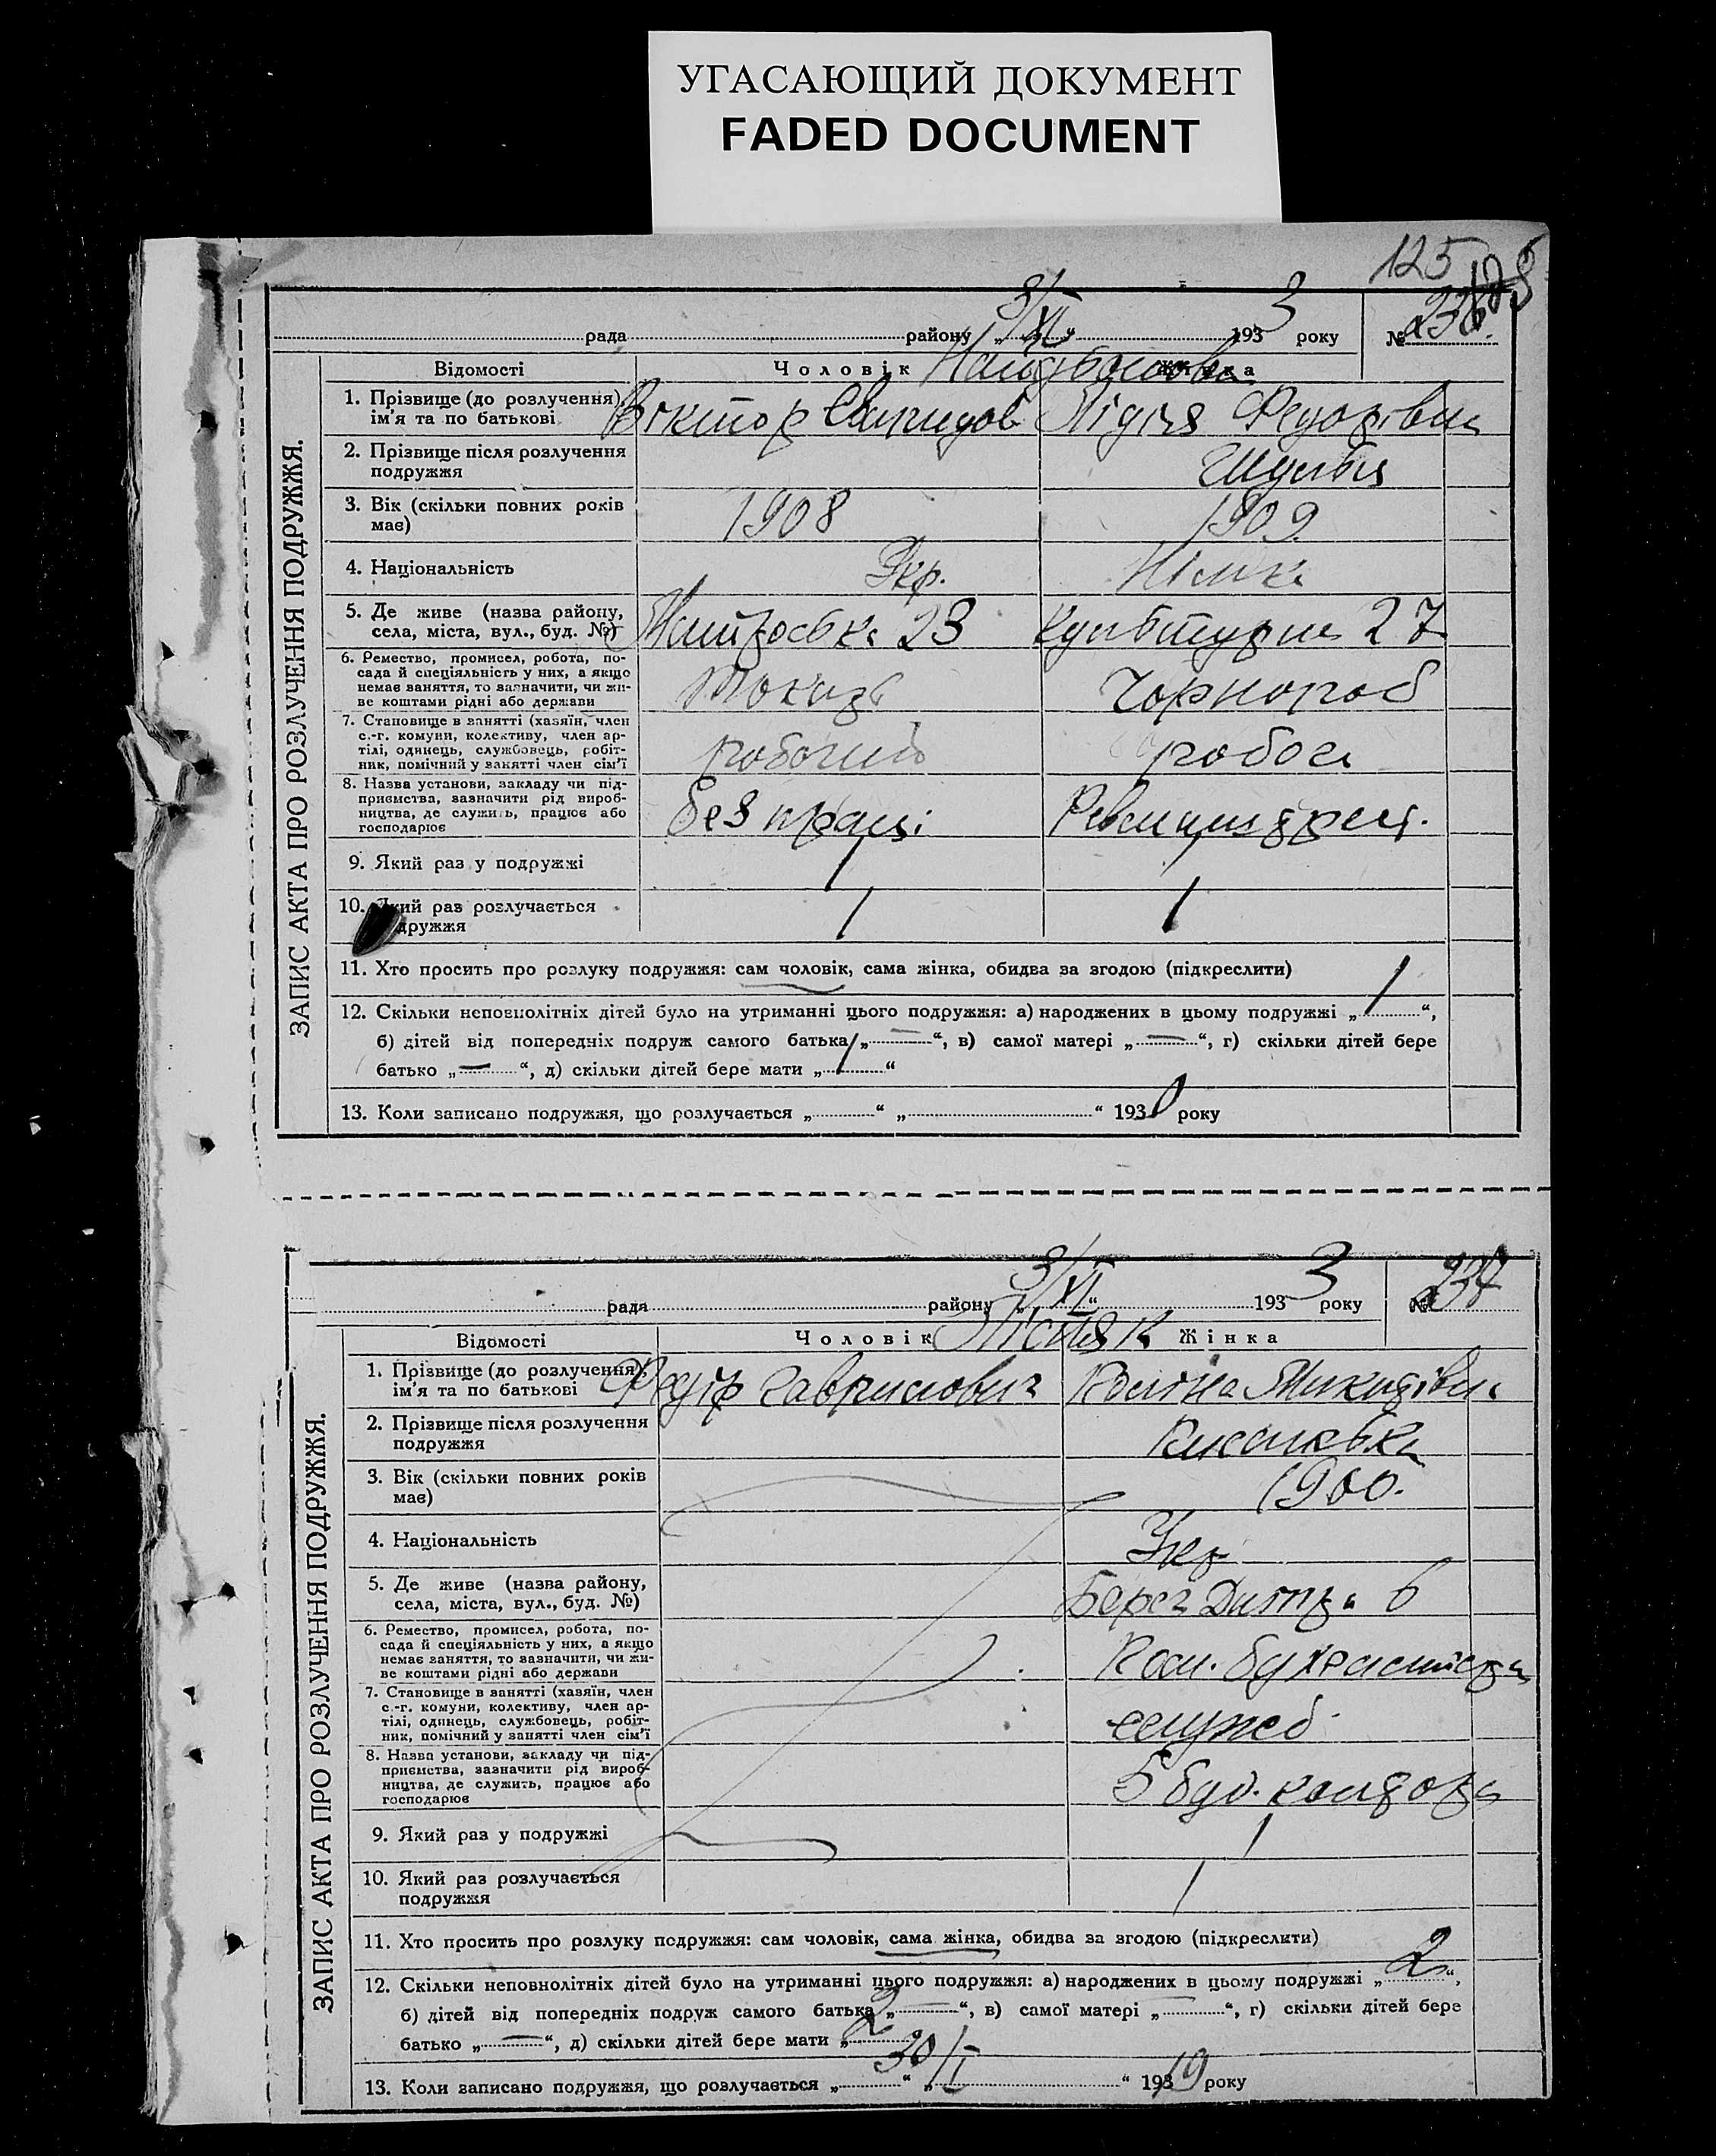 УГАСАЮЩИЙ ДОКУМЕНТ
FADED DOCUMENT
125
рада району „3/XI“ 1933 року № 236.
ЗАПИС АКТА ПРО РОЗЛУЧЕННЯ ПОДРУЖЖЯ.
Відомості Чоловік Жінка
1. Прізвище (до розлучення) ім'я та по батькові Віктор Лідія Федорівна
2. Прізвище після розлучення подружжя Шульц
3. Вік (скільки повних років має) 1908 1909
4. Національність Укр. Німка
5. Де живе (назва району, села, міста, вул., буд. №) 23 Культурна 27
6. Ремество, промисел, робота, по-
сада й спеціяльність у них, а якщо
немає заняття, то зазначити, чи жи-
ве коштами рідні або держави Токарь Чорнороб
7. Становище в занятті (хазяїн, член
с.-г. комуни, колективу, член ар-
тілі, одинець, службовець, робіт-
ник, помічний у занятті член сім'ї робочий робоча
8. Назва установи, закладу чи під-
приємства, зазначити рід вироб-
ництва, де служить, працює або
господарює без праці
9. Який раз у подружжі 1 1
10. Який раз розлучається подружжя 1 1
11. Хто просить про розлуку подружжя: сам чоловік, сама жінка, обидва за згодою (підкреслити)
12. Скільки неповнолітніх дітей було на утриманні цього подружжя: а) народжених в цьому подружжі „1“,
б) дітей від попередніх подруж самого батька „—“, в) самої матері „—“, г) скільки дітей бере
батько „—“, д) скільки дітей бере мати „1“
13. Коли записано подружжя, що розлучається „ “ „ “ 1930 року
рада району „3/XI“ 1933 року № 237
ЗАПИС АКТА ПРО РОЗЛУЧЕННЯ ПОДРУЖЖЯ.
Відомості Чоловік Жінка
1. Прізвище (до розлучення) ім'я та по батькові Федір Гаврилович
2. Прізвище після розлучення подружжя
3. Вік (скільки повних років має) 1900.
4. Національність Укр
5. Де живе (назва району, села, міста, вул., буд. №) Берег Дніпра 6
6. Ремество, промисел, робота, по-
сада й спеціяльність у них, а якщо
немає заняття, то зазначити, чи жи-
ве коштами рідні або держави
7. Становище в занятті (хазяїн, член
с.-г. комуни, колективу, член ар-
тілі, одинець, службовець, робіт-
ник, помічний у занятті член сім'ї служб
8. Назва установи, закладу чи під-
приємства, зазначити рід вироб-
ництва, де служить, працює або
господарює 5 буд. контора
9. Який раз у подружжі 1
10. Який раз розлучається подружжя 1
11. Хто просить про розлуку подружжя: сам чоловік, сама жінка, обидва за згодою (підкреслити)
12. Скільки неповнолітніх дітей було на утриманні цього подружжя: а) народжених в цьому подружжі „2“,
б) дітей від попередніх подруж самого батька „—“, в) самої матері „—“, г) скільки дітей бере
батько „—“, д) скільки дітей бере мати „2“
13. Коли записано подружжя, що розлучається „30“ „I“ 1919 року